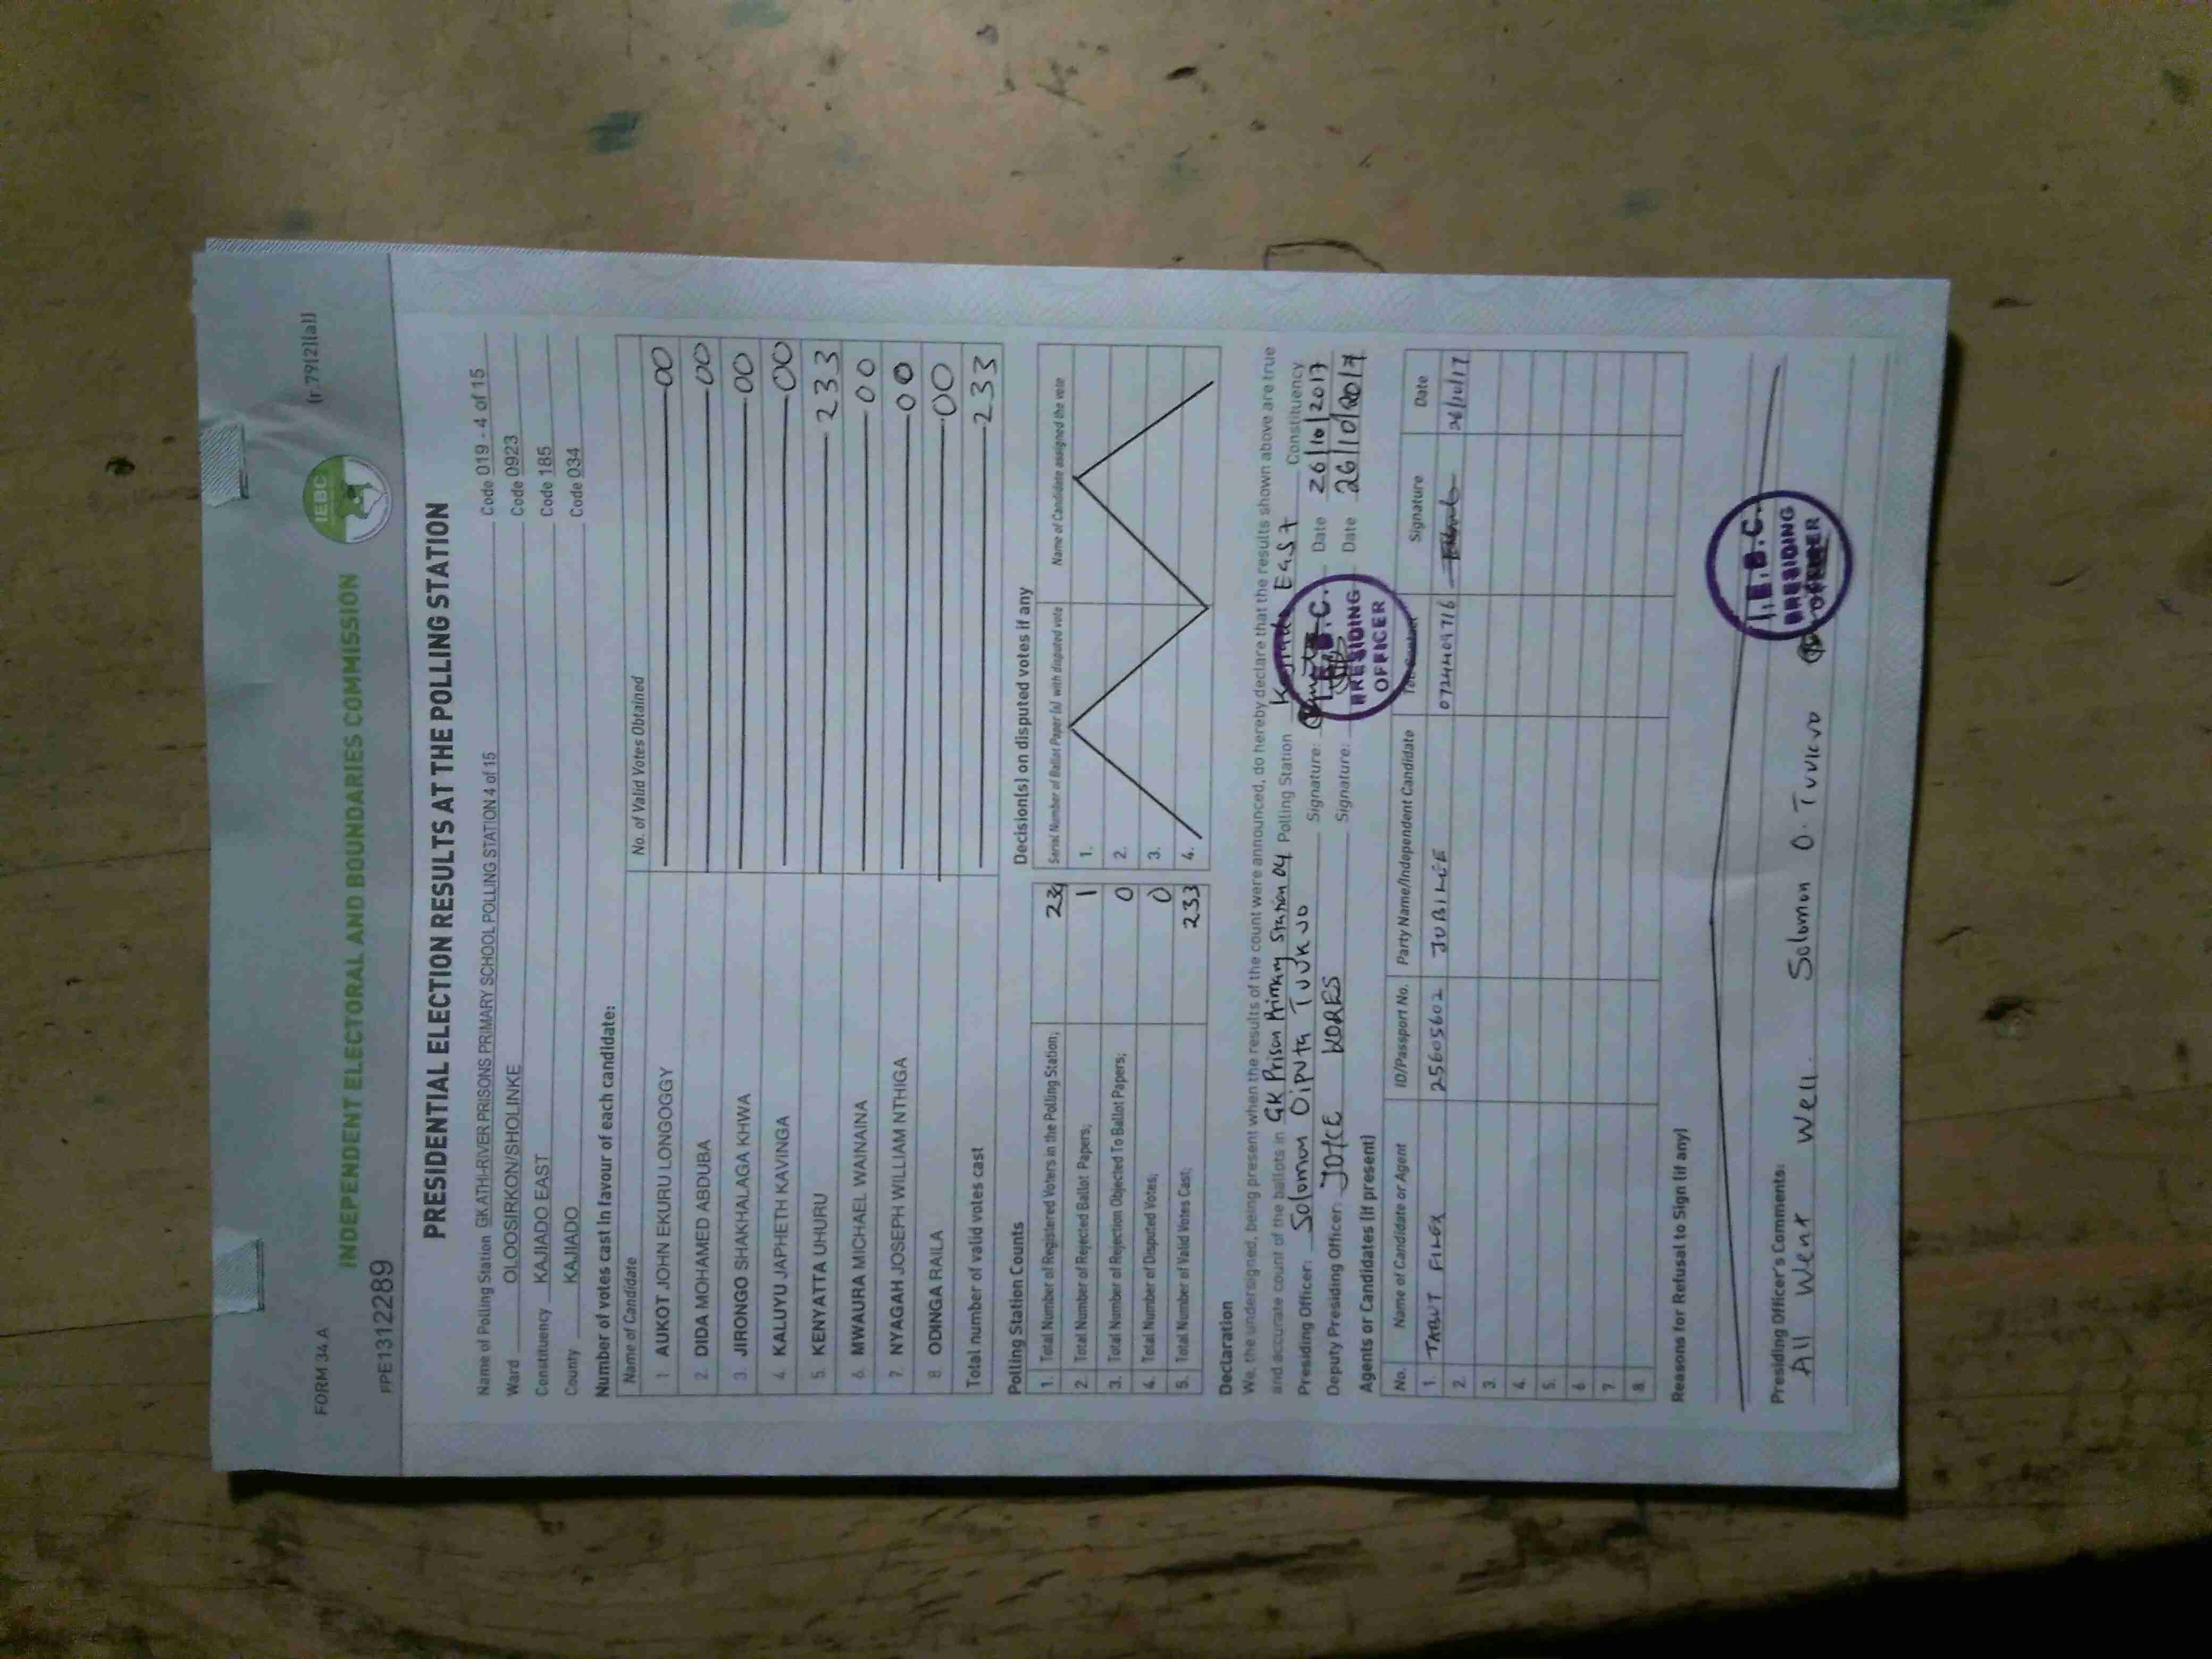 FORM 34 A
(r.79(2)(a))
IEBC
INDEPENDENT ELECTORAL AND BOUNDARIES COMMISSION
FPE1312289
PRESIDENTIAL ELECTION RESULTS AT THE POLLING STATION
Name of Polling Station GK ATHI-RIVER PRISONS PRIMARY SCHOOL POLLING STATION 4 of 15 Code 019 - 4 of 15
Ward OLOOSIRKON/SHOLINKE Code 0923
Constituency KAJIADO EAST Code 185
County KAJIADO Code 034
Number of votes cast in favour of each candidate:
Name of Candidate No. of Valid Votes Obtained
1 AUKOT JOHN EKURU LONGOGGY 00
2. DIDA MOHAMED ABDUBA 00
3. JIRONGO SHAKHALAGA KHWA 00
4. KALUYU JAPHETH KAVINGA 00
5. KENYATTA UHURU 233
6. MWAURA MICHAEL WAINAINA 00
7. NYAGAH JOSEPH WILLIAM NTHIGA 00
8. ODINGA RAILA 00
Total number of valid votes cast 233
Polling Station Counts
1. Total Number of Registered Voters in the Polling Station;
2. Total Number of Rejected Ballot Papers; 1
3. Total Number of Rejection Objected To Ballot Papers; 0
4. Total Number of Disputed Votes; 0
5. Total Number of Valid Votes Cast; 233
Decision(s) on disputed votes if any
Serial Number of Ballot Paper (s) with disputed vote Name of Candidate assigned the vote
1.
2.
3.
4.
Declaration
We, the undersigned, being present when the results of the count were announced, do hereby declare that the results shown above are true
and accurate count of the ballots in GK Prison Primary Station 04 Polling Station East Constituency
Presiding Officer: Solomon Signature: Date 26/10/2017
Deputy Presiding Officer: JOYCE Signature: Date 26/10/2017
I.E.B.C.
PRESIDING
OFFICER
Agents or Candidates (if present)
No. Name of Candidate or Agent ID/Passport No. Party Name/Independent Candidate Tel. Contact Signature Date
1. 25605602 JUBILEE 0724409716 26/10/17
2.
3.
4.
5.
6
7.
8.
Reasons for Refusal to Sign (if any)
Presiding Officer's Comments:
All Went Well. Solomon O.
I.E.B.C.
PRESIDING
OFFICER